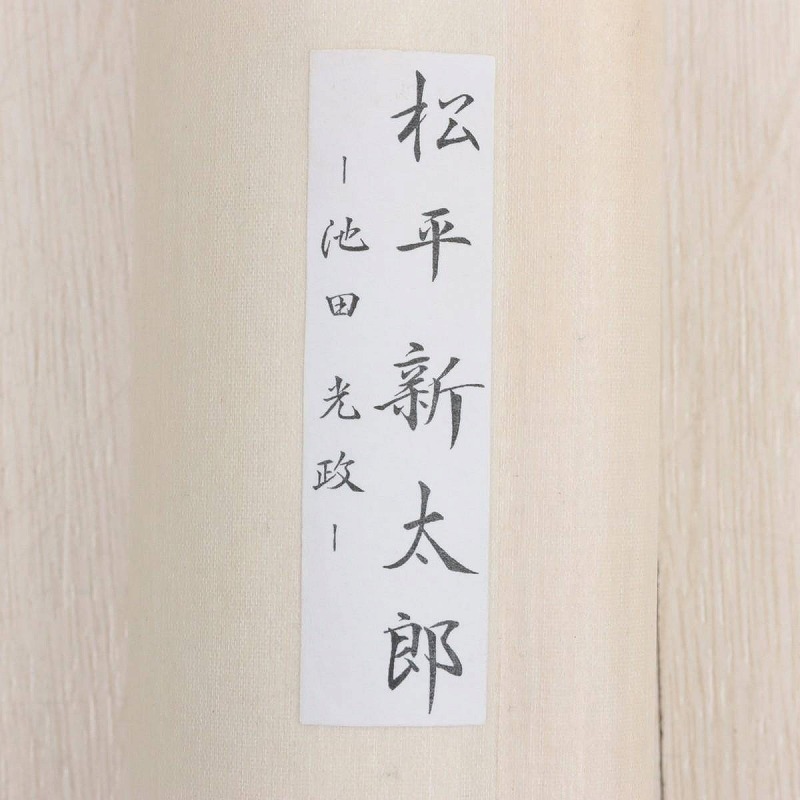 松平新太郎
―池田光政―